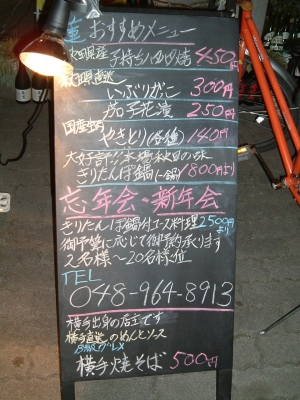 おすすめメニュー
秋田県産 子持ちハタハタ焼 450円
秋田県直送
いぶりがっこ 300円
茄子花漬 250円
国産
やきとり(各種) 140円
大好評!!本場秋田の味
きりたんぽ鍋(一鍋) 1800円より
忘年会・新年会
きりたんぽ鍋付コース料理 2500円より
御予算に応じて御予約承ります
2名様〜20名様位
TEL
048-964-8913
横手出身の店主です
横手直送のめんとソース
B級グルメ
横手焼そば 500円